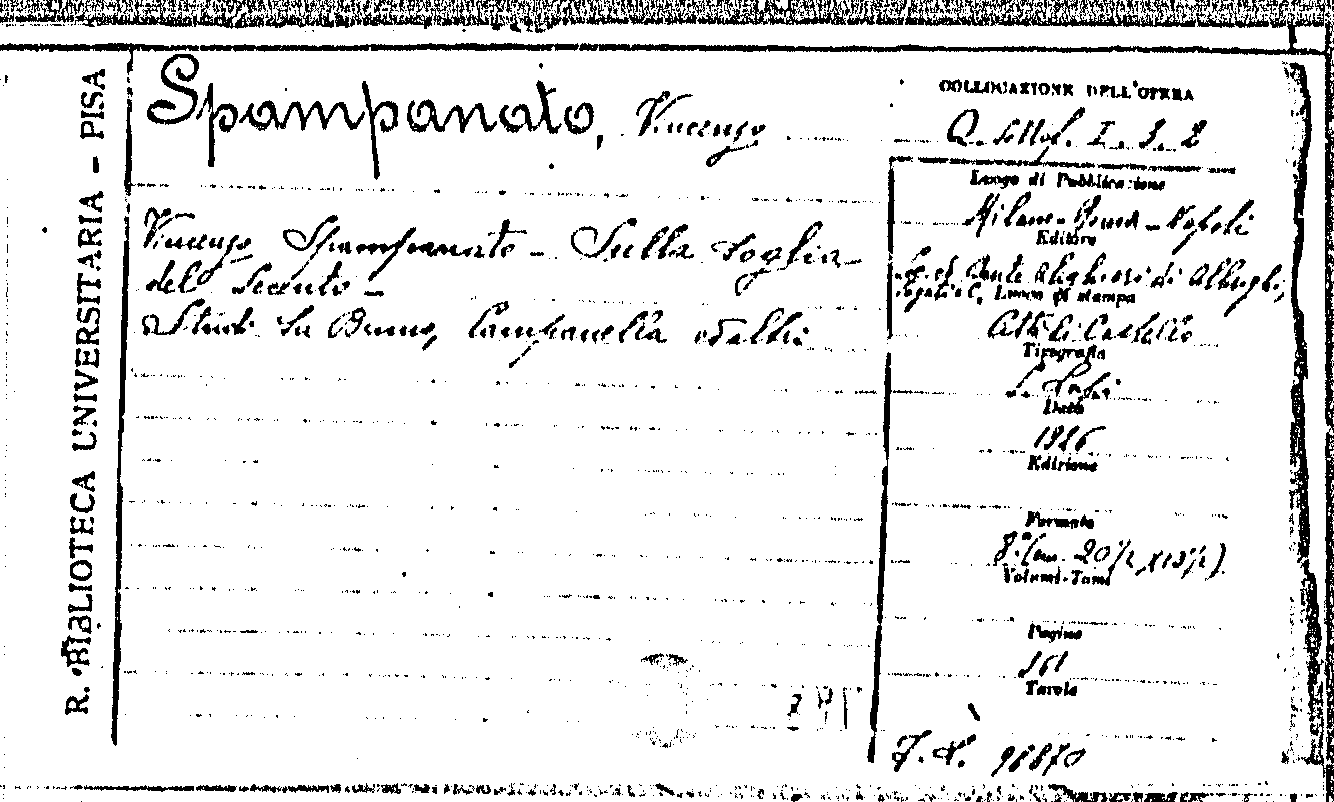 R. BIBLIOTECA UNIVERSITARIA - PISA
Spampanato, Vincenzo
Vincenzo Spampanato - Sulla soglia
del Secento -
Studi su Bruno, Campanella ed altri
COLLOCAZIONE DELL'OPERA
Q. Sottof. I. 3. 2
Luogo di Pubblicazione
Milano - Roma - Napoli
Editore
Soc. ed. Dante Alighieri di Albrighi,
Segati e C. Luogo di stampa
Città di Castello
Tipografia
Data
1926
Edizione
Formato
8.° (cm. 20½ x 13½)
Volumi-Tomi
Pagine
361
Tavole
98870